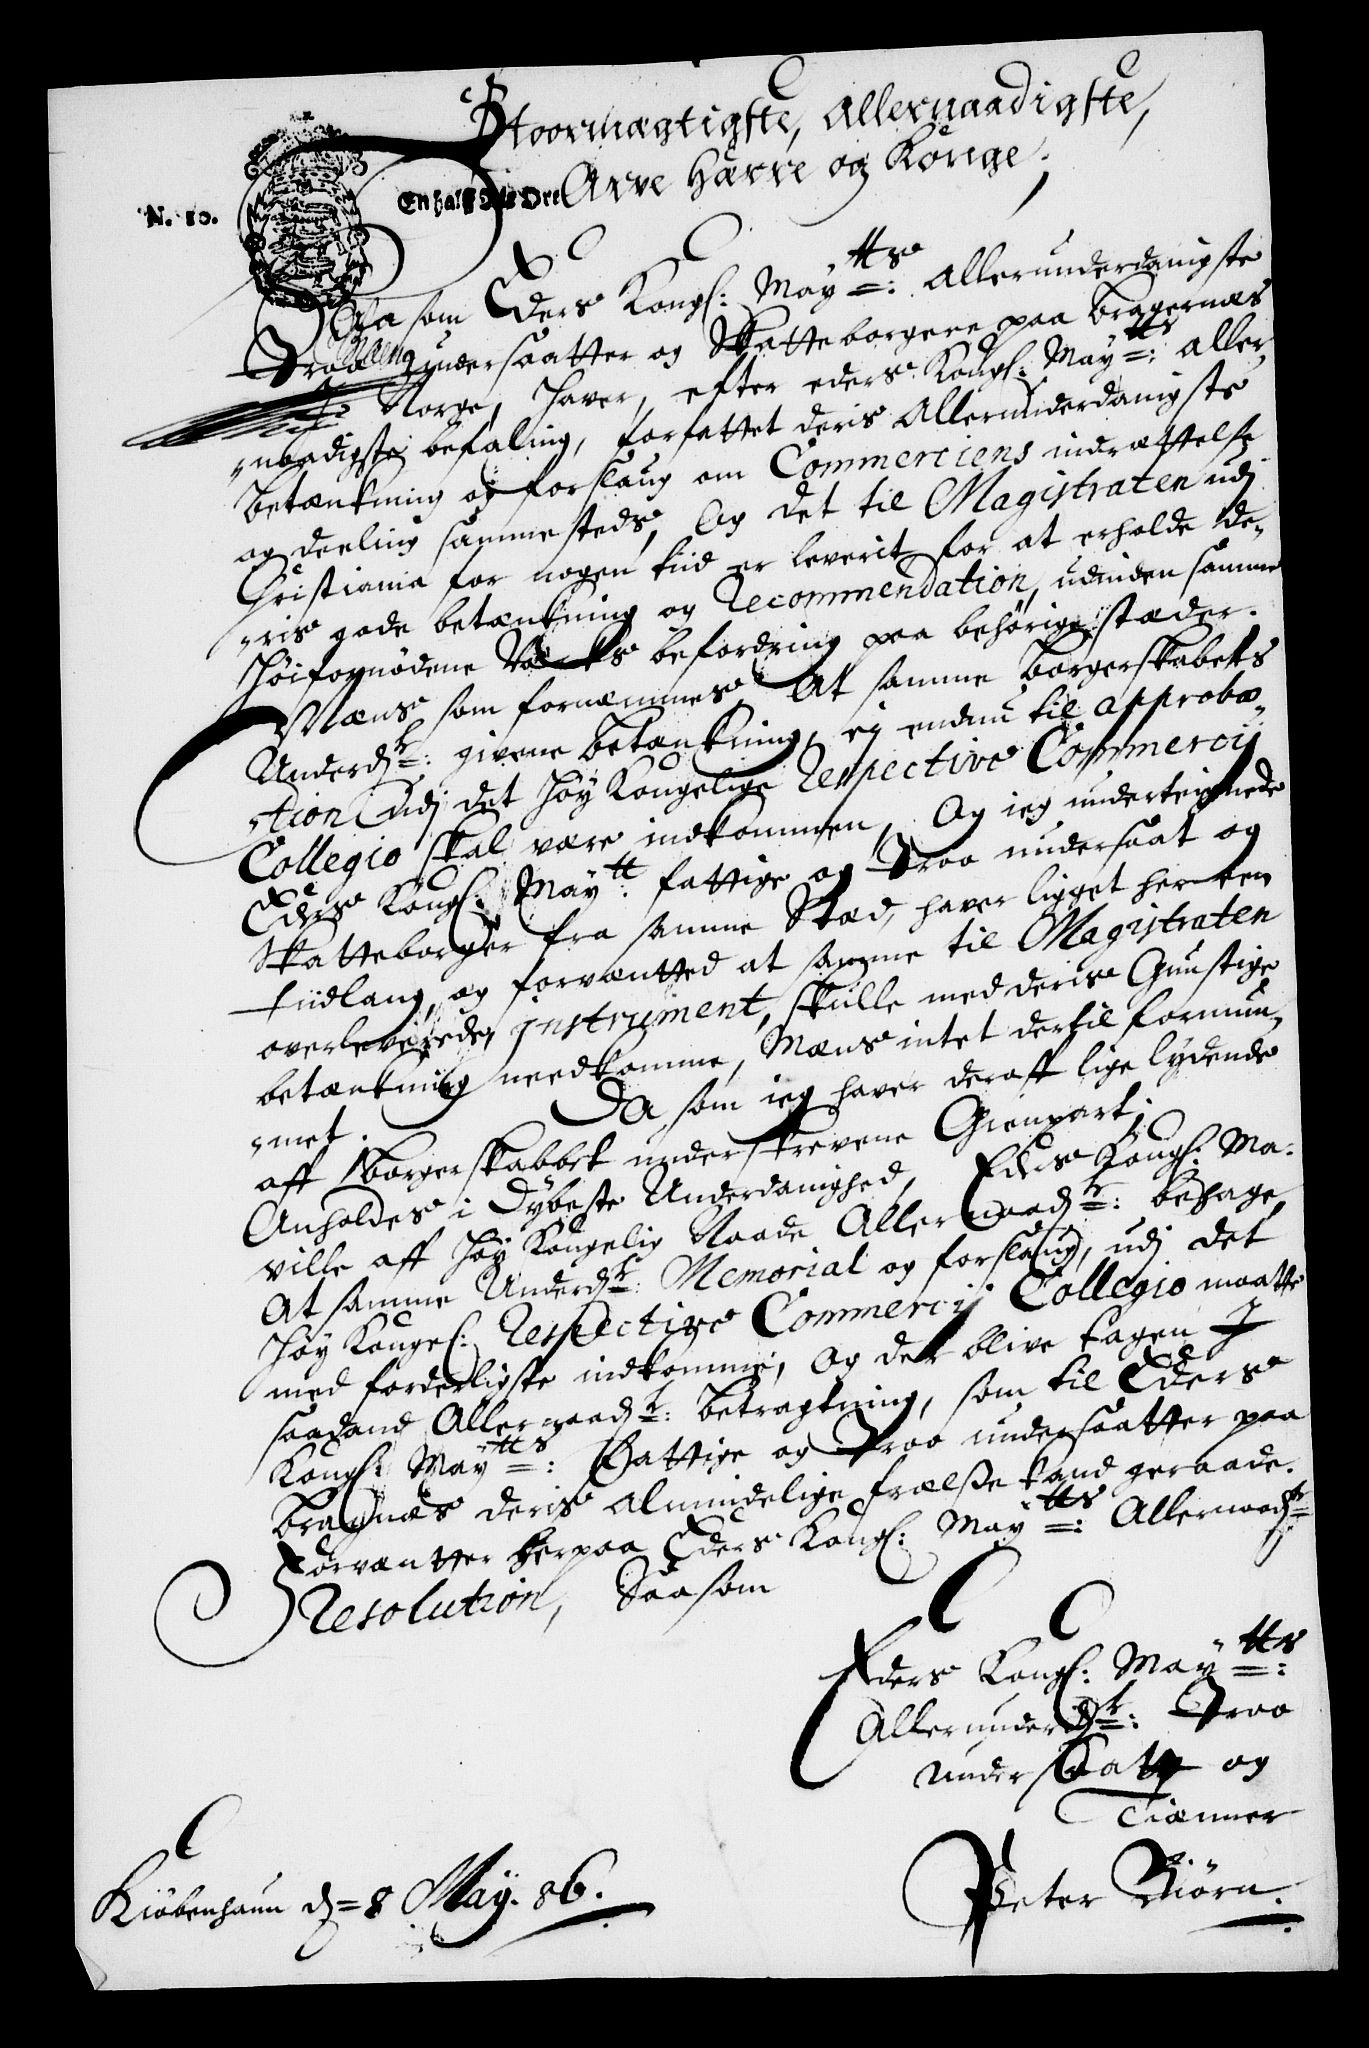 Stoormægtigste, Allernaadigste,
N. 80. En half Ort Dr Arve Hærre og Konge;
Saasom Eders Kongl: Maytts: allerunderdanigste
Troe undersaatter og Skatteborgere paa Bragernæs
J Norge, hafver, efter eders Kongl: Maytts: aller,
"naadigste befaling, forfattet deris Allerunderdanigste
betænkning og forslaug om Commerciens indrættelse
og deeling sammesteds, Og det til Magistraten udj
Christiania for nogen tiid er leverit for at erholde de,,
"ris gode betænkning og Recommendation, udinden samme
høifornødene Værks befordring paa behørige stæder.
Mens som fornæmmes, At samme borgerskabets
Underdk: givene betænkning, ej endnu til approba,,
"tion udj det høy Kongelige Respective Commercij
Collegio skal være indkommen, Og ieg underteignede
Eders Kongl: Maytt: fattige og Troe undersaat og
Skatteborger fra samme Stæd, hafver ligget her en
tiidlang, og forventted at samme til Magistraten
overleverede, instrument, skulle med deris Gunstige
betænkning needkomme, Mens intet dertil fornum,,
"met. Da som ieg hafver deraff lige lydende
aff Borgerskabbet underskrevene Gienpart;
Anholdes i Dybeste Underdanighed, Eders Kongl: Ma:
ville aff høy Kongelig Naade Allernaadk: behage,
At samme Underdk: Memorial og forslaug, udj det
høy Kongel: Respective Commercij Collegio maatte
med forderligste indkomme, Og der blive tagen J
saadand Allernaadk: betragtning, som til Eders
Kongl: Maytts: Fattige og Troe undersaatter paa
Bragnæs deris almindelige frælse kand geraade.
Forvænter herpaa Eders Kongl: Maytts: Allernaadk:
Resolution, Saasom
Eders Kongl: Maytts:
Allerunderdk: Troe
undersaatt og
Tiænner
Peter Biørn.
Kiøbenhaun d= 8 May. 86.